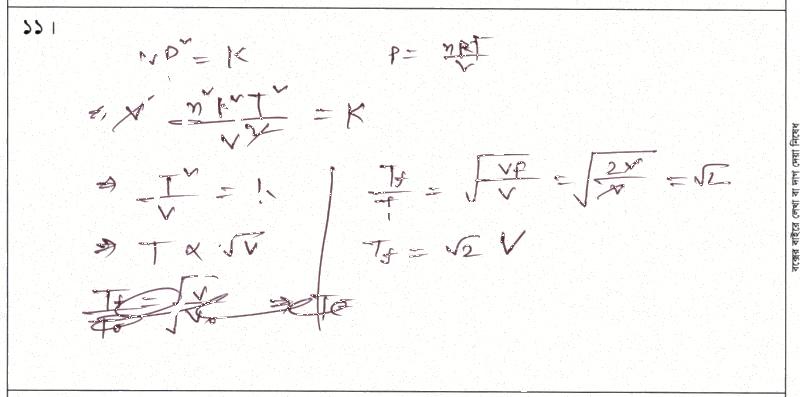 ১১।
VP² = K
P = nRT/V
⇒ V · n²R²T²/V² = K
⇒ T²/V = K
⇒ T ∝ √V
Tf/Ti = √(Vf/V) = √(2V/V) = √2
Tf = √2 V
বক্সের বাইরে লেখা বা দাগ দেয়া নিষেধ